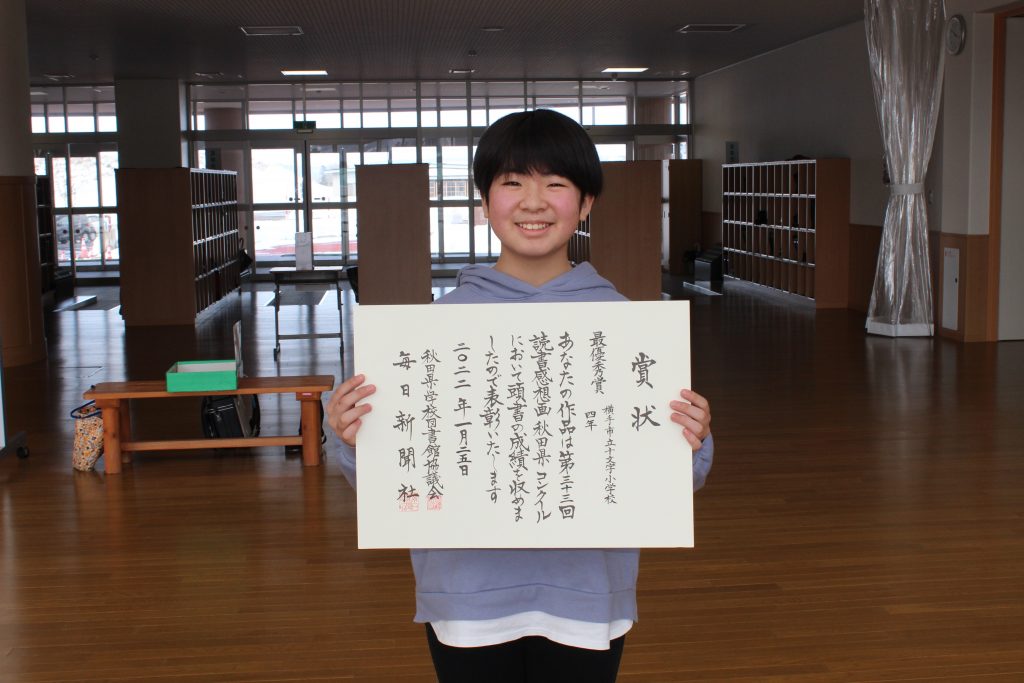 賞状
横手市立十文字小学校
最優秀賞 四年
あなたの作品は第三十三回
読書感想画秋田県コンクール
において頭書の成績を収めま
したので表彰いたします
二〇二二年一月二五日
秋田県学校図書館協議会
毎日新聞社